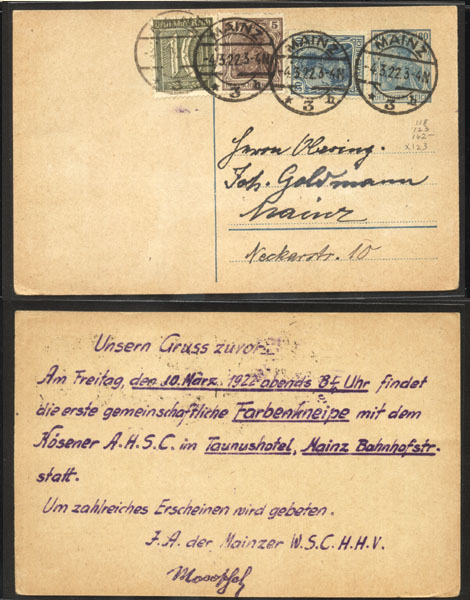 5
MAINZ
MAINZ
MAINZ
-4.3.22.3-4N
-4.3.22.3-4N
-4.3.22.3-4N
* 3 h
* 3 h
* 3 h
118
123
162-
x123
Herrn Obering.
Joh. Goldmann
Mainz
Neckarstr. 10
Unsern Gruss zuvor.
Am Freitag, den 10. März 1922 abends Uhr findet
die erste gemeinschaftliche Farbenkneipe mit dem
Kösener A.H.S.C. im Taunushotel, Mainz Bahnhofstr.
statt.
Um zahlreiches Erscheinen wird gebeten.
J.A. der Mainzer W.S.C.H.H.V.